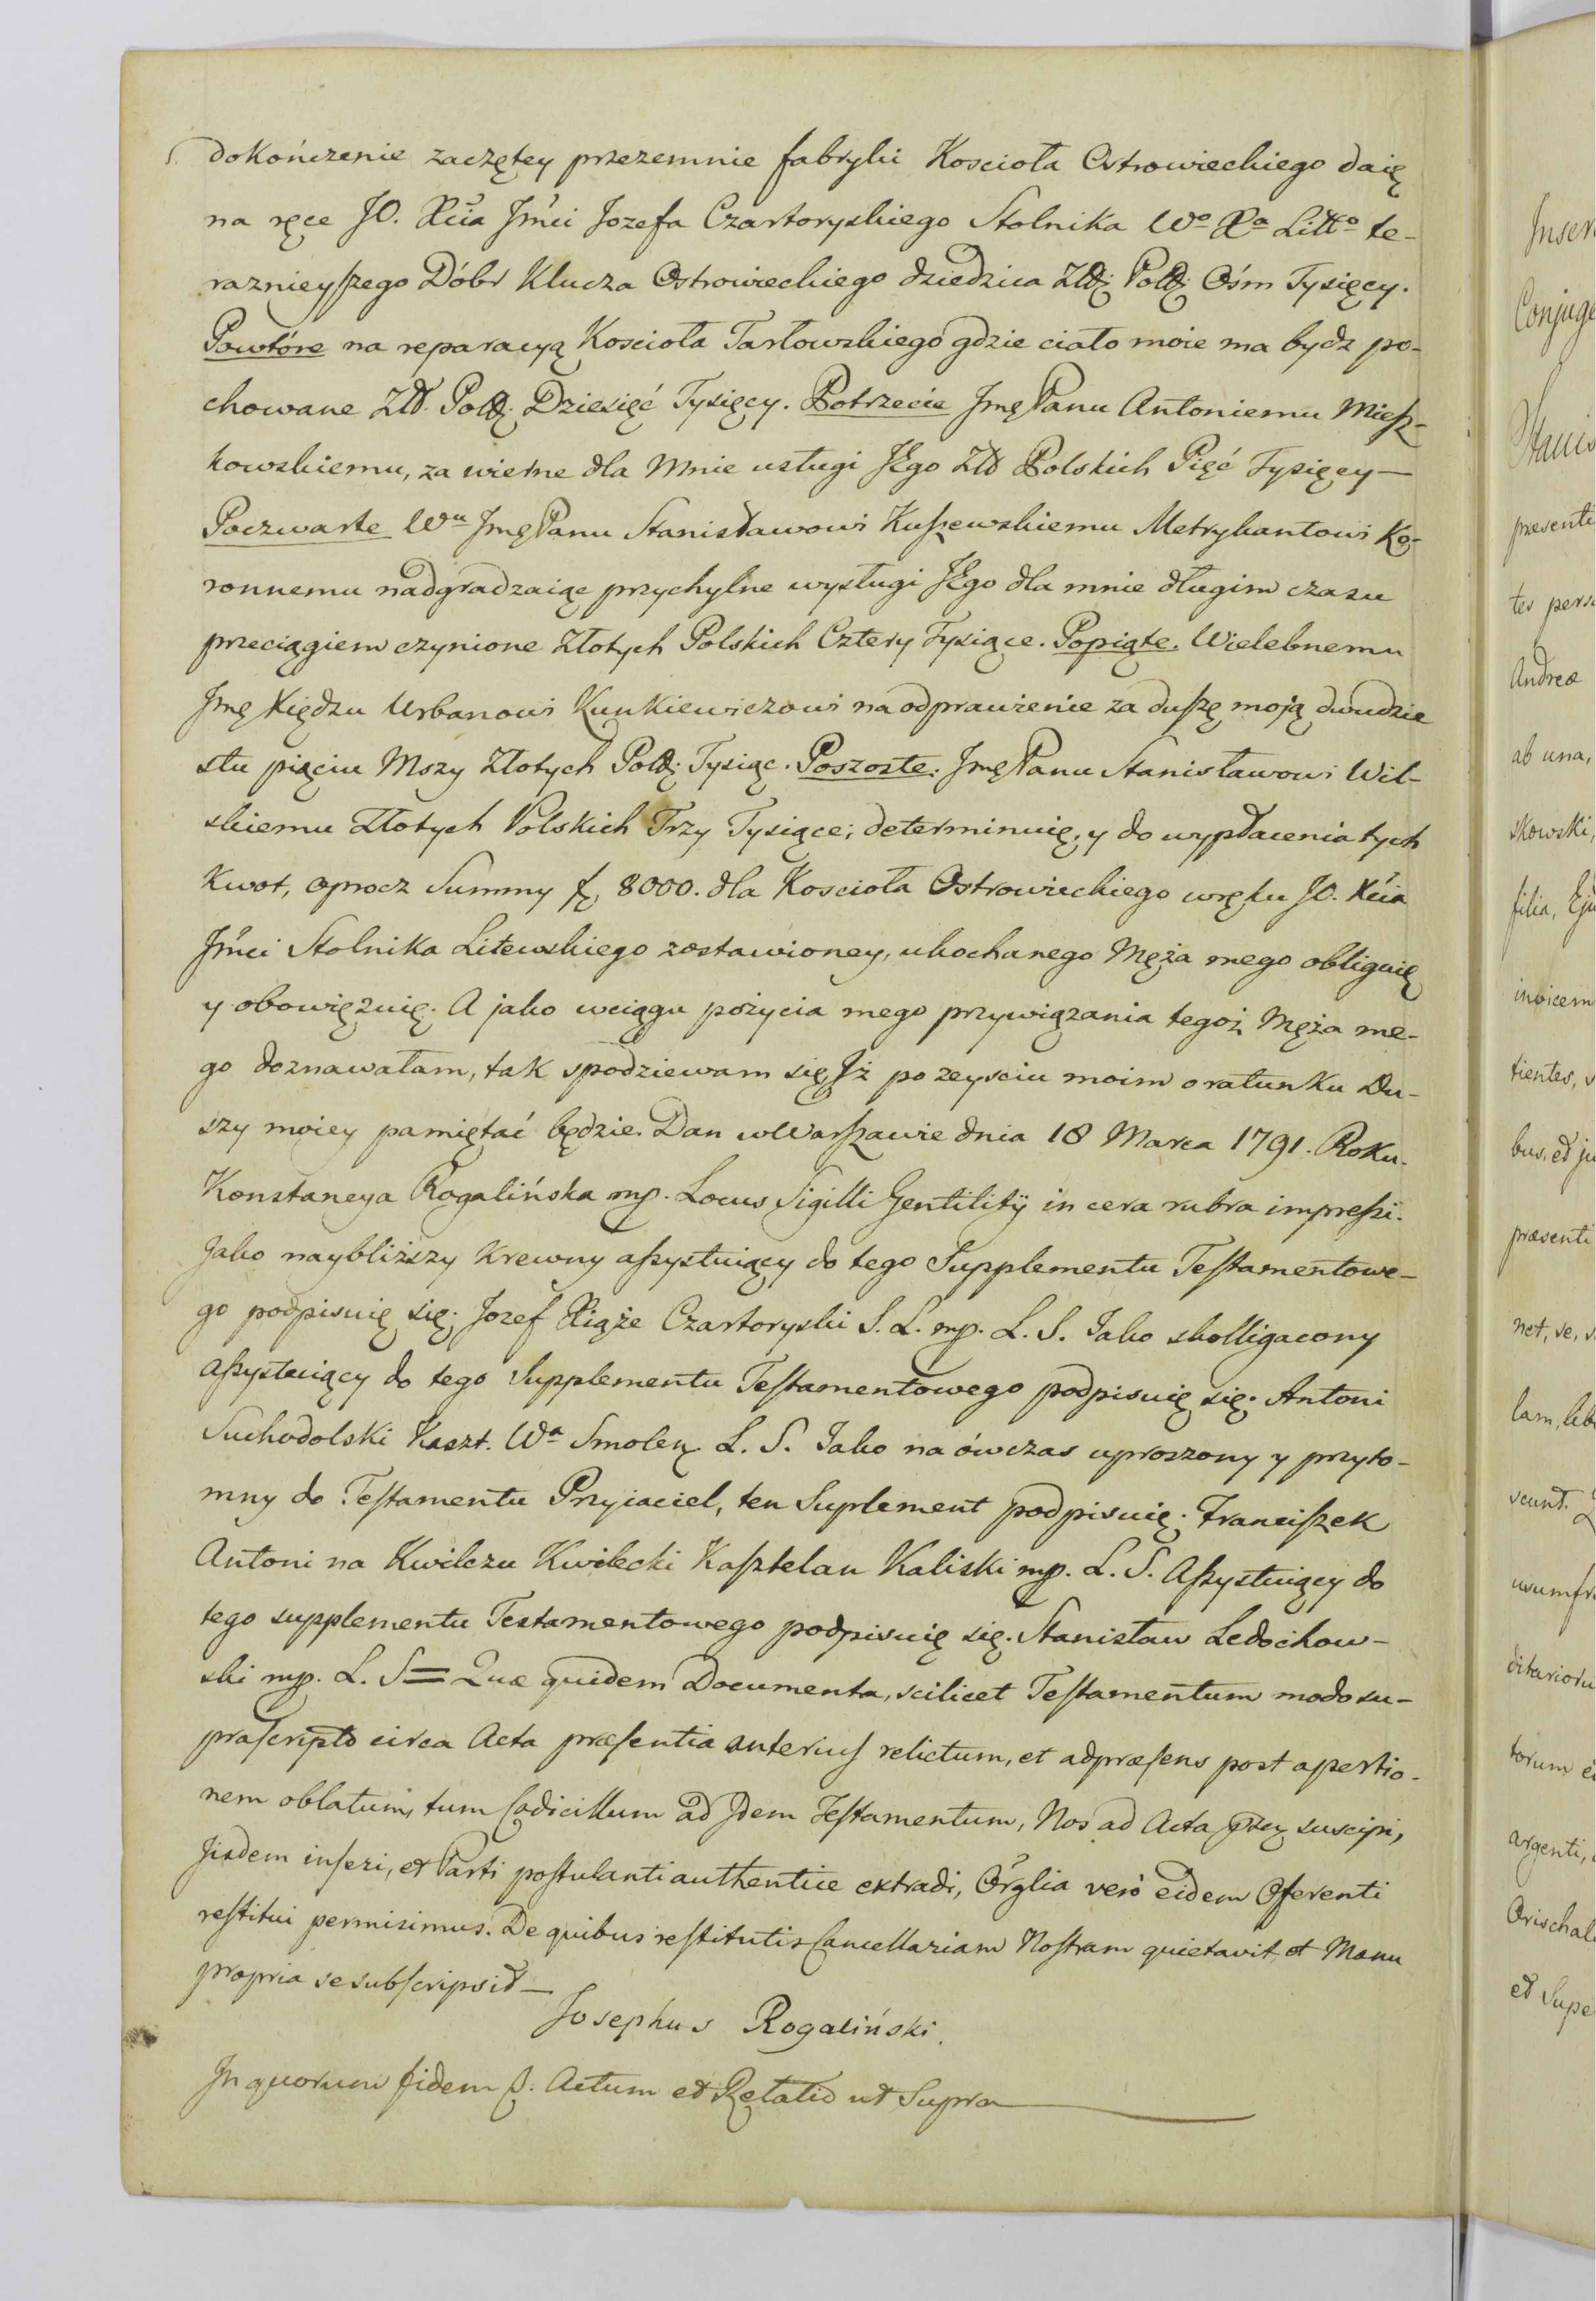 dokończenie zaczętey przezemnie fabryki Koscioła Ostrowieckiego daię
na ręce JO. Xcia Jmci Jozefa Czartoryskiego Stolnika Wo Xa Litto te-
raznieyszego Dóbr Klucza Ostrowieckiego dziedzica Złł: Poll: Ośm Tysięcy.
Powtóre na reparacyą Koscioła Tarłowskiego gdzie ciało moie ma bydz po-
chowane Złł. Poll: Dziesięć Tysięcy. Potrzecie Jmę Panu Antoniemu Miesz-
kowskiemu, za wierne dla Mnie usługi JEgo Złł Polskich Pięć Tysięcy—
Poczwarte Wu Jmę Panu Stanisławowi Kuszewskiemu Metrykantowi Ko-
ronnemu nadgradzaiąc przychylne wysługi JEgo dla mnie długim czasu
przeciągiem czynione Złotych Polskich Cztery Tysiące. Popiąte. Wielebnemu
Jmę Xiędzu Urbanowi Kunkiewiczowi na odprawienie za duszę moją dwudzie
stu pięciu Mszy Złotych Poll: Tysiąc. Poszoste: Jmę Panu Stanisławowi Wil-
skiemu Złotych Polskich Trzy Tysiące; determinuię, y do wypłacenia tych
Kwot, oprocz Summy f 8000. dla Koscioła Ostrowieckiego wręku JO. Xcia
Jmci Stolnika Litewskiego zostawioney, ukochanego Męża mego obliguię
y obowięzuię. A jako wciągu pożycia mego przywiązania tegoż Męża me-
go doznawałam, tak spodziewam się Jż po zeysciu moim o ratunku Du-
szy moiey pamiętać będzie. Dan w Warszawie dnia 18 Marca 1791. Roku.
Konstancya Rogalińska mp. Locus Sigilli Gentilitÿ in cera rubra impressi.
Jako naybliższy Krewny assystuiący do tego Supplementu Testamentowe-
go podpisuię się. Jozef Xiąże Czartoryski S. L. mp. L. S. Jako skolligacony
assystuiący do tego Supplementu Testamentowego podpisuię się. Antoni
Suchodolski Kaszt. Wa Smolen L. S. Jako na ówczas uproszony y przyto-
mny do Testamentu Przyiaciel, ten Suplement podpisuię. Franciszek
Antoni na Kwilczu Kwilecki Kasztelan Kaliski mp. L. S. Assystuiący do
tego supplementu Testamentowego podpisuię się. Stanisław Ledochow-
ski mp. L. S= Quæ quidem Documenta, scilicet Testamentum modo su-
prascripto circa Acta præsentia anterius relictum, et adpræsens post apertio-
nem oblatum, tum Codicillum ad Jdem Testamentum, Nos ad Acta pntia suscipi,
Jisdem inseri, et Parti postulanti authentice extradi, Orglia verò eidem Oferenti
restitui permisimus. De quibus restitutis Cancellariam Nostram quietavit, et Manu
propria se subscripsit—
Josephus Rogaliński.
Jn quorum fidem p. Actum et Relatio ut Supra
Inser
Conjuge
Stanis
præsenti
ter perso
Andreæ
ab una,
skowski,
filia, Eju
invicem
tientes, s
bus, et ju
præsenti
net, se, s
lam, leb
scunt.
usumfru
ditarioru
torum e
argenti,
Orischal
et Supe